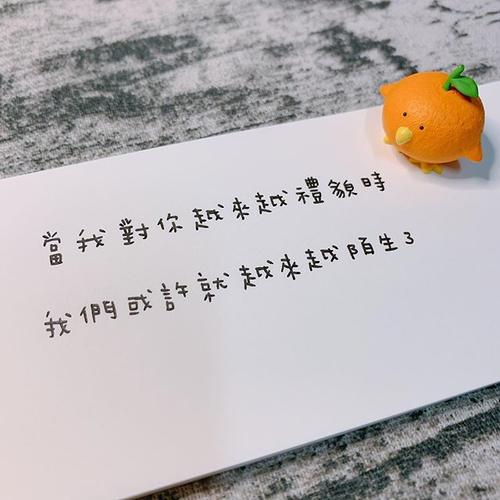 當我對你越來越禮貌時
我們或許就越來越陌生了